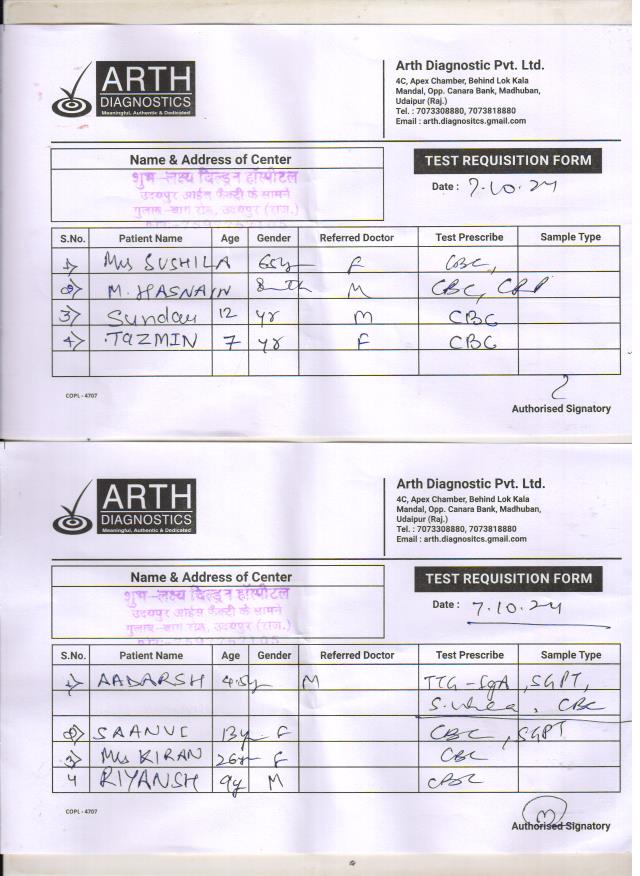 ARTH
DIAGNOSTICS
Meaningful, Authentic & Dedicated
Arth Diagnostic Pvt. Ltd.
4C, Apex Chamber, Behind Lok Kala
Mandal, Opp. Canara Bank, Madhuban,
Udaipur (Raj.)
Tel. : 7073308880, 7073818880
Email : arth.diagnositcs.gmail.com
Name & Address of Center
TEST REQUISITION FORM
शुभ-लक्ष्य चिल्ड्रन हॉस्पीटल
उदयपुर आईस फैक्ट्री के सामने
गुलाब-बाग रोड, उदयपुर (राज.)
Date : 7.10.24
S.No. Patient Name Age Gender Referred Doctor Test Prescribe Sample Type
1 Mrs SUSHILA 65y F CBC,
2 M. HASNAIN 8 mth M CBC, CRP
3 Sundar 12 yr M CBC
4 TAZMIN 7 yr F CBC
COPL - 4707
Authorised Signatory
ARTH
DIAGNOSTICS
Meaningful, Authentic & Dedicated
Arth Diagnostic Pvt. Ltd.
4C, Apex Chamber, Behind Lok Kala
Mandal, Opp. Canara Bank, Madhuban,
Udaipur (Raj.)
Tel. : 7073308880, 7073818880
Email : arth.diagnositcs.gmail.com
Name & Address of Center
TEST REQUISITION FORM
शुभ-लक्ष्य चिल्ड्रन हॉस्पीटल
उदयपुर आईस फैक्ट्री के सामने
गुलाब-बाग रोड, उदयपुर (राज.)
Date : 7.10.24
S.No. Patient Name Age Gender Referred Doctor Test Prescribe Sample Type
1 AADARSH 4.5y M TTG-IgA, SGPT,
S. Urea, CBC
2 SAANVI 13y F CBC, SGPT
3 Mrs KIRAN 26yr F CBC
4 RIYANSH 9y M CBC
COPL - 4707
Authorised Signatory